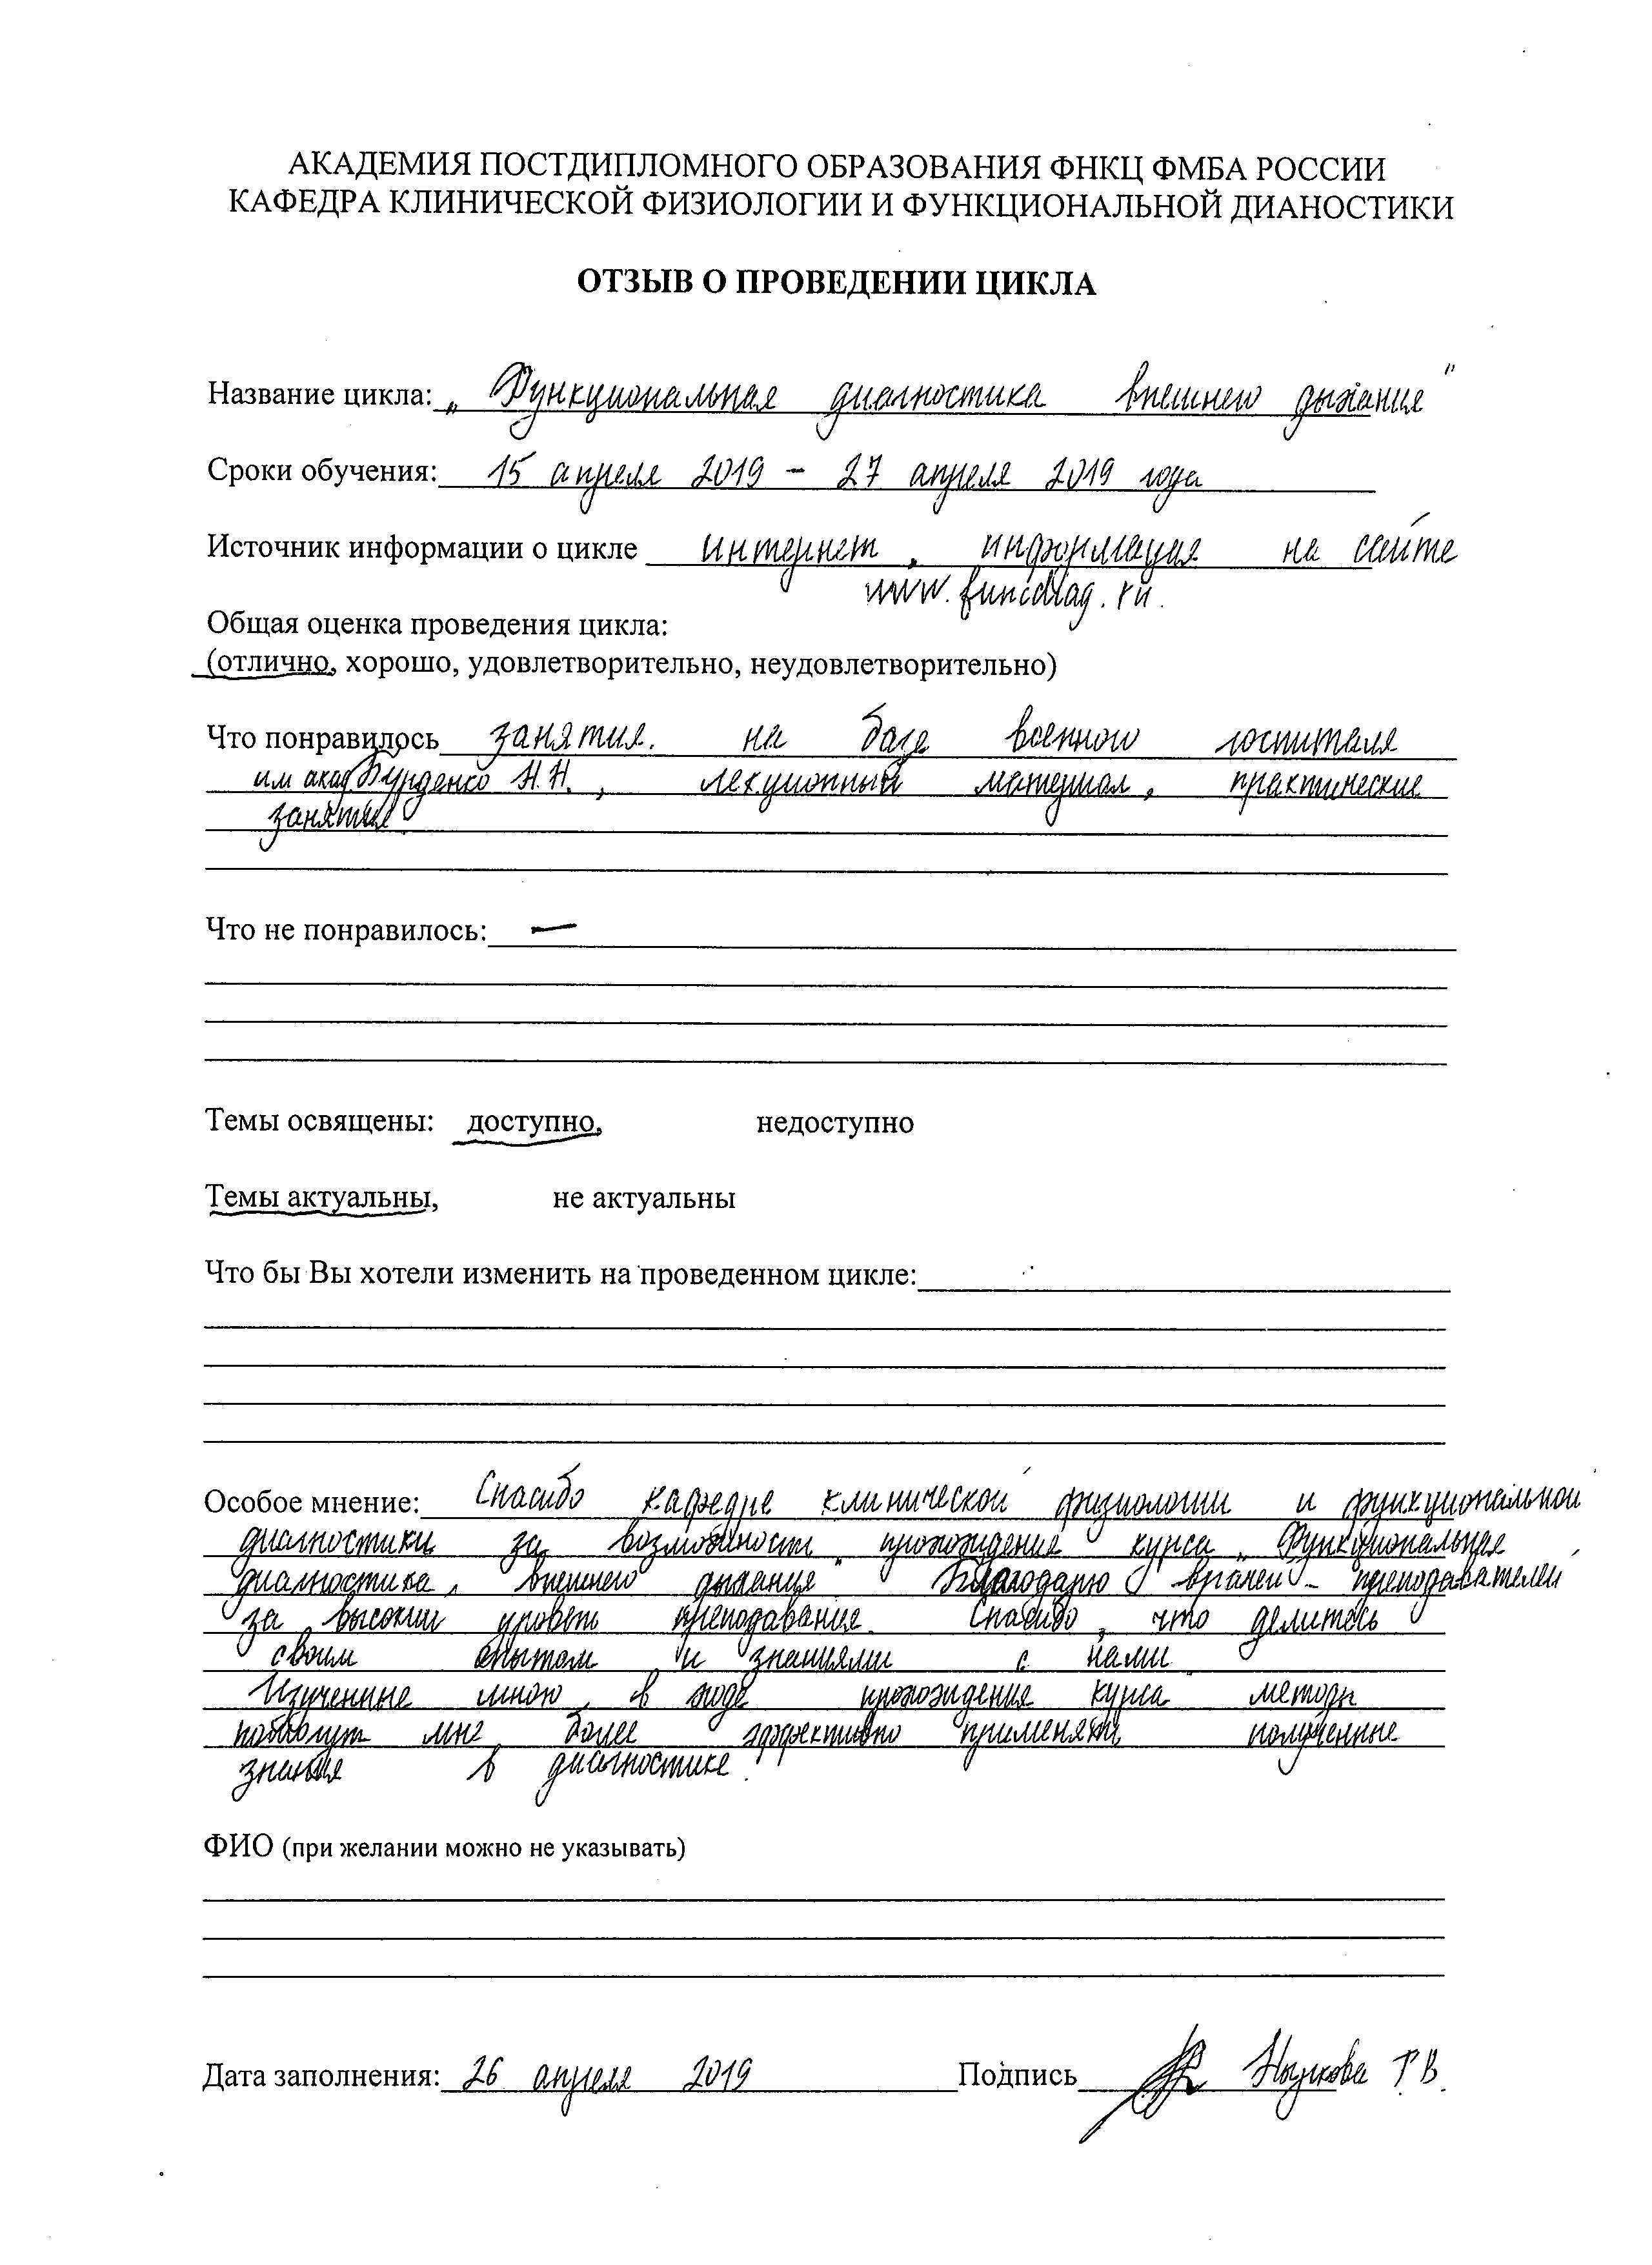 АКАДЕМИЯ ПОСТДИПЛОМНОГО ОБРАЗОВАНИЯ ФНКЦ ФМБА РОССИИ
КАФЕДРА КЛИНИЧЕСКОЙ ФИЗИОЛОГИИ И ФУНКЦИОНАЛЬНОЙ ДИАНОСТИКИ
ОТЗЫВ О ПРОВЕДЕНИИ ЦИКЛА
Название цикла: „ Функциональная диагностика внешнего дыхания"
Сроки обучения: 15 апреля 2019 - 27 апреля 2019 года
Источник информации о цикле интернет, информация на сайте
www.funcdiag.ru.
Общая оценка проведения цикла:
(отлично, хорошо, удовлетворительно, неудовлетворительно)
Что понравилось занятия. на базе военного госпиталя
им акад Бурденко Н.Н., лекционный материал, практические
занятия.
Что не понравилось: —
Темы освящены: доступно, недоступно
Темы актуальны, не актуальны
Что бы Вы хотели изменить на проведенном цикле:
Особое мнение: Спасибо кафедре клинической физиологии и функциональной
диагностики за возможность прохождения курса „ Функциональная
диагностика внешнего дыхания" Благодарю врачей - преподавателей
за высокий уровень преподавания. Спасибо, что делитесь
своим опытом и знаниями с нами.
Изученные мною в ходе прохождения курса методы
позволят мне более эффективно применять полученные
знания в диагностике.
ФИО (при желании можно не указывать)
Дата заполнения: 26 апреля 2019 Подпись Т.В.